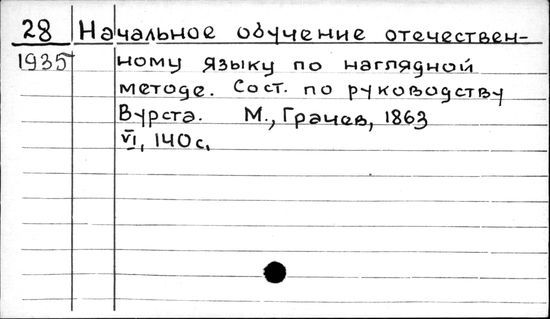 28 Начальное обучение отечествен-
1935 ному языку по наглядной
методе. Сост. по руководству
Вурста. М., Грачев, 1863
VI, 140 с.